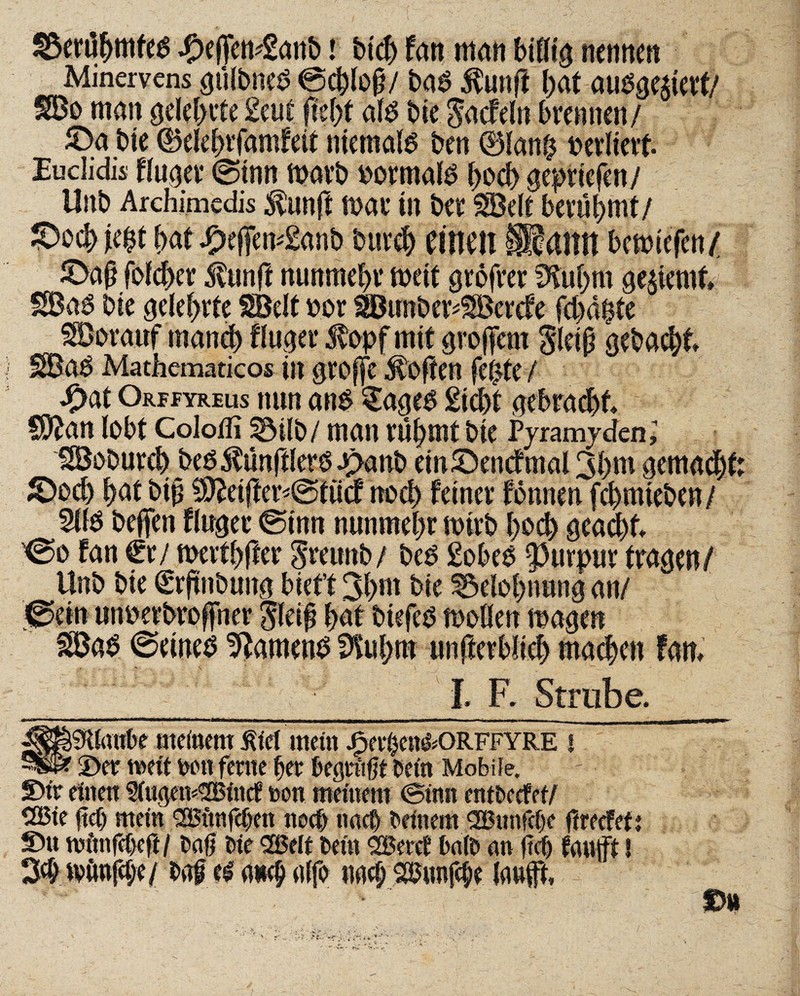 Berühmtes Hessen-Land! dich kan man billig nennen
Minervens güldnes Schloß/ das Kunst hat ausgeziert/
Wo man gelehrte Leut sieht als die Fackeln brennen/
Da die Gelehrsamkeit niemals den Glantz verliert.
Euclidis kluger Sinn ward vormals hoch gepriesen/
Und Archimedis Kunst war in der Welt berühmt/
Doch jetzt hat Hessen-Land durch einen Mann bewiesen/
Daß solcher Kunst nunmehr weit grösrer Ruhm geziemt.
Was die gelehrte Welt vor Wunder-Wercke schätzte
Worauf manch kluger Kopf mit grossem Fleiß gedacht.
Was Mathematicos in grosse Kosten setzte/
Hat ORFFYREUS nun ans Tages Licht gebracht.
Man lobt Colossi Bild/ man rühmt die Pyramyden,
Wodurch des Künstlers Hand ein Denckmal Ihm gemacht:
Doch hat diß Meister-Stück noch keiner können schmieden/
Als dessen kluger Sinn nunmehr wird hoch geacht.
So kan Er/ werthster Freund/ des Lobes Purpur tragen/
Und die Erfindung biet't Ihm die Belohnung an/
Sein unverdroßner Fleiß hat dieses wollen wagen
Was Seines Namens Ruhm unsterblich machen kan.
I. F. Strube.
Erlaube meinem Kiel mein Hertzens-ORFFYRE !
Der weit von ferne her begrüßt dein Mobile.
Dir einen Augen-Winck von meinem Sinn entdecket/
Wie sich mein Wünschen noch nach deinem Wunsche strecket:
Du wünschest/ daß die Welt dein Werck bald an sich kaufft!
Ich wünsche/ daß es auch also nach Wunsche laufft.
Du